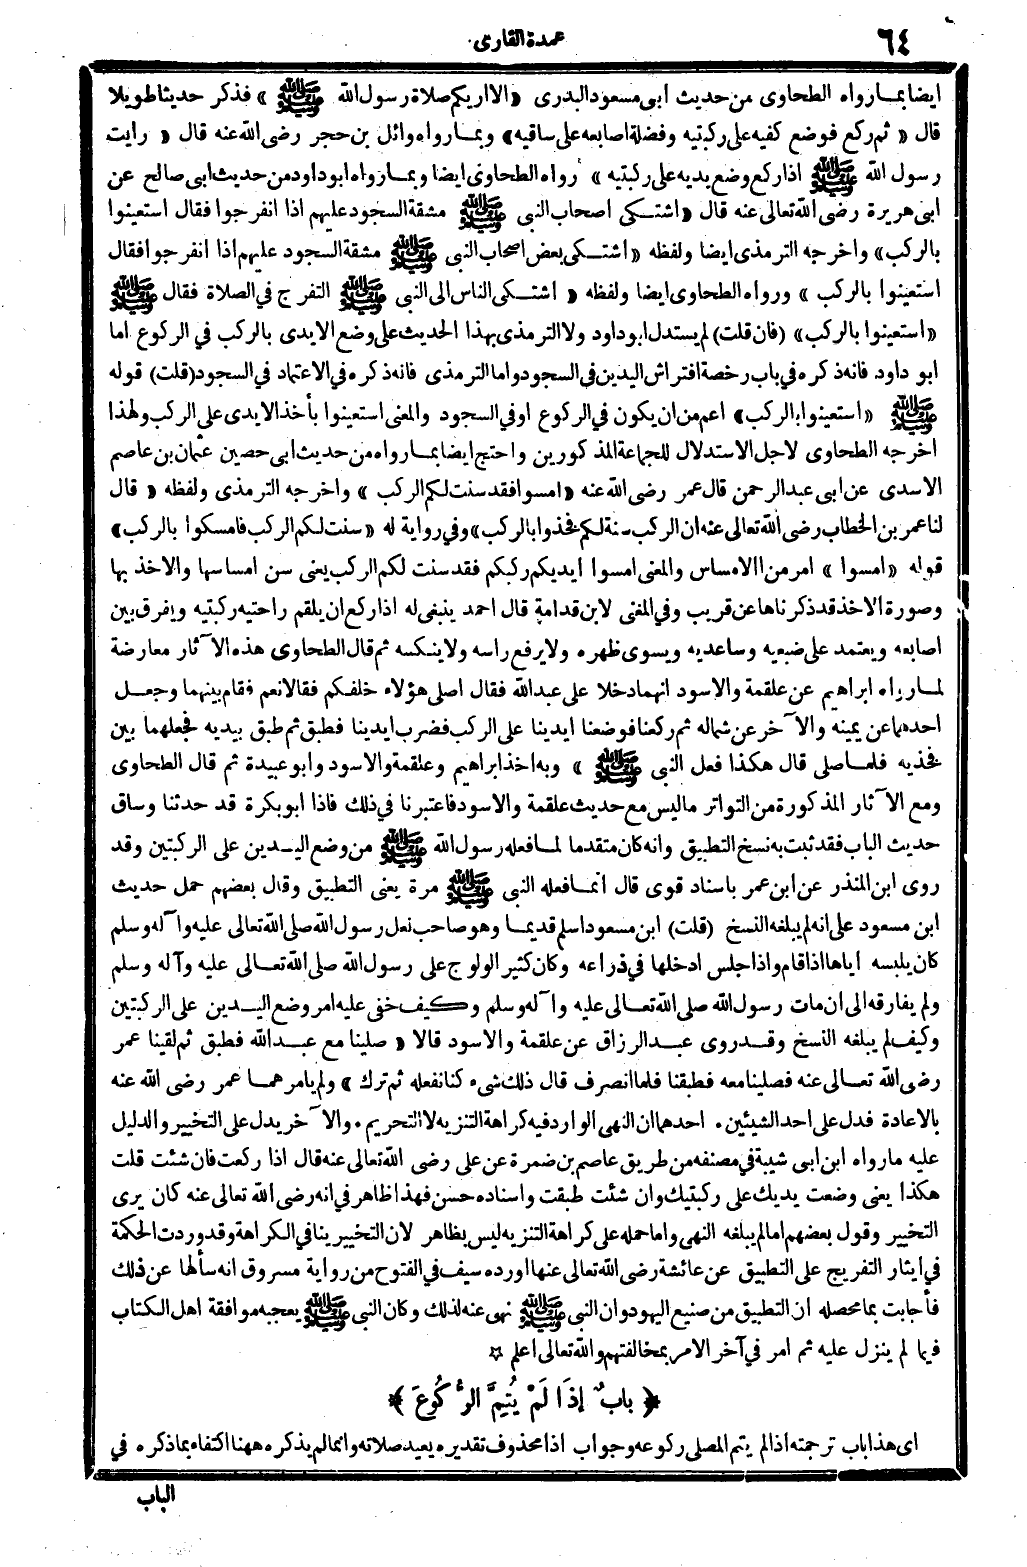 ٦٤
عمدة القارى
ايضا بما رواه الطحاوى من حديث ابى مسعود البدرى «الا اريكم صلاة رسول الله ﷺ» فذكر حديثا طويلا
قال «ثم ركع فوضع كفيه على ركبتيه وفضلة اصابعه على ساقيه» وبما رواه وائل بن حجر رضى الله عنه قال «رايت
رسول الله ﷺ اذا ركع وضع يديه على ركبتيه» رواه الطحاوى ايضا وبما رواه ابو داود من حديث ابى صالح عن
ابى هريرة رضى الله تعالى عنه قال «اشتكى اصحاب النبى ﷺ مشقة السجود عليهم اذا انفرجوا فقال استعينوا
بالركب» واخرجه الترمذى ايضا ولفظه «اشتكى بعض اصحاب النبى ﷺ مشقة السجود عليهم اذا انفرجوا فقال
استعينوا بالركب» ورواه الطحاوى ايضا ولفظه «اشتكى الناس الى النبى ﷺ التفرج في الصلاة فقال ﷺ
«استعينوا بالركب» (فان قلت) لم يستدل ابو داود ولا الترمذى بهذا الحديث على وضع الايدى بالركب في الركوع اما
ابو داود فانه ذكره في باب رخصة افتراش اليدين في السجود واما الترمذى فانه ذكره في الاعتماد في السجود (قلت) قوله
ﷺ «استعينوا بالركب» اعم من ان يكون في الركوع او في السجود والمعنى استعينوا بأخذ الايدى على الركب ولهذا
اخرجه الطحاوى لاجل الاستدلال للجماعة المذكورين واحتج ايضا بما رواه من حديث ابى حصين عثمان بن عاصم
الاسدى عن ابى عبد الرحمن قال عمر رضى الله عنه «امسوا فقد سنت لكم الركب» واخرجه الترمذى ولفظه «قال
لنا عمر بن الخطاب رضى الله تعالى عنه ان الركب سنة لكم فخذوا بالركب» وفي رواية له «سنت لكم الركب فامسكوا بالركب»
قوله «امسوا» امر من الامساس والمعنى امسوا ايديكم ركبكم فقد سنت لكم الركب يعنى سن امساسها والاخذ بها
وصورة الاخذ قد ذكرناها عن قريب وفي المغنى لابن قدامة قال احمد ينبغى له اذا ركع ان يلقم راحتيه ركبتيه ويفرق بين
اصابعه ويعتمد على ضبعيه وساعديه ويسوى ظهره ولا يرفع راسه ولا ينكسه ثم قال الطحاوى هذه الآثار معارضة
لما رواه ابراهيم عن علقمة والاسود انهما دخلا على عبد الله فقال اصلى هؤلاء خلفكم فقالا نعم فقام بينهما وجعل
احدهما عن يمينه والآخر عن شماله ثم ركعنا فوضعنا ايدينا على الركب فضرب ايدينا فطبق ثم طبق بيديه فجعلهما بين
فخذيه فلما صلى قال هكذا فعل النبى ﷺ» وبه اخذ ابراهيم وعلقمة والاسود وابو عبيدة ثم قال الطحاوى
ومع الآثار المذكورة من التواتر ما ليس مع حديث علقمة والاسود فاعتبرنا في ذلك فاذا ابو بكرة قد حدثنا وساق
حديث الباب فقد ثبت به نسخ التطبيق وانه كان متقدما لما فعله رسول الله ﷺ من وضع اليدين على الركبتين وقد
روى ابن المنذر عن ابن عمر باسناد قوى قال انما فعله النبى ﷺ مرة يعنى التطبيق وقال بعضهم حمل حديث
ابن مسعود على انه لم يبلغه النسخ (قلت) ابن مسعود اسلم قديما وهو صاحب نعل رسول الله صلى الله تعالى عليه وآله وسلم
كان يلبسه اياها اذا قام واذا جلس ادخلها في ذراعه وكان كثير الولوج على رسول الله صلى الله تعالى عليه وآله وسلم
ولم يفارقه الى ان مات رسول الله صلى الله تعالى عليه وآله وسلم وكيف خفى عليه امر وضع اليدين على الركبتين
وكيف لم يبلغه النسخ وقد روى عبد الرزاق عن علقمة والاسود قالا «صلينا مع عبد الله فطبق ثم لقينا عمر
رضى الله تعالى عنه فصلينا معه فطبقنا فلما انصرف قال ذلك شىء كنا نفعله ثم ترك» ولم يامرهما عمر رضى الله عنه
بالاعادة فدل على احد الشيئين. احدهما ان النهى الوارد فيه كراهة التنزيه لا التحريم. والآخر يدل على التخيير والدليل
عليه ما رواه ابن ابى شيبة في مصنفه من طريق عاصم بن ضمرة عن على رضى الله تعالى عنه قال اذا ركعت فان شئت قلت
هكذا يعنى وضعت يديك على ركبتيك وان شئت طبقت واسناده حسن فهذا ظاهر في انه رضى الله تعالى عنه كان يرى
التخيير وقول بعضهم اما لم يبلغه النهى واما حمله على كراهة التنزيه ليس بظاهر لان التخيير ينافي الكراهة وقد وردت الحكمة
في ايثار التفريج على التطبيق عن عائشة رضى الله تعالى عنها اورده سيف في الفتوح من رواية مسروق انه سألها عن ذلك
فأجابت بما محصله ان التطبيق من صنيع اليهود وان النبى ﷺ نهى عنه لذلك وكان النبى ﷺ يعجبه موافقة اهل الكتاب
فيما لم ينزل عليه ثم امر في آخر الامر بمخالفتهم والله تعالى اعلم ☆
﴿ بابٌ إِذَا لَمْ يُتِمَّ الرُّكُوعَ ﴾
اى هذا باب ترجمته اذا لم يتم المصلى ركوعه وجواب اذا محذوف تقديره يعيد صلاته وانما لم يذكره ههنا اكتفاء بما ذكره في
الباب